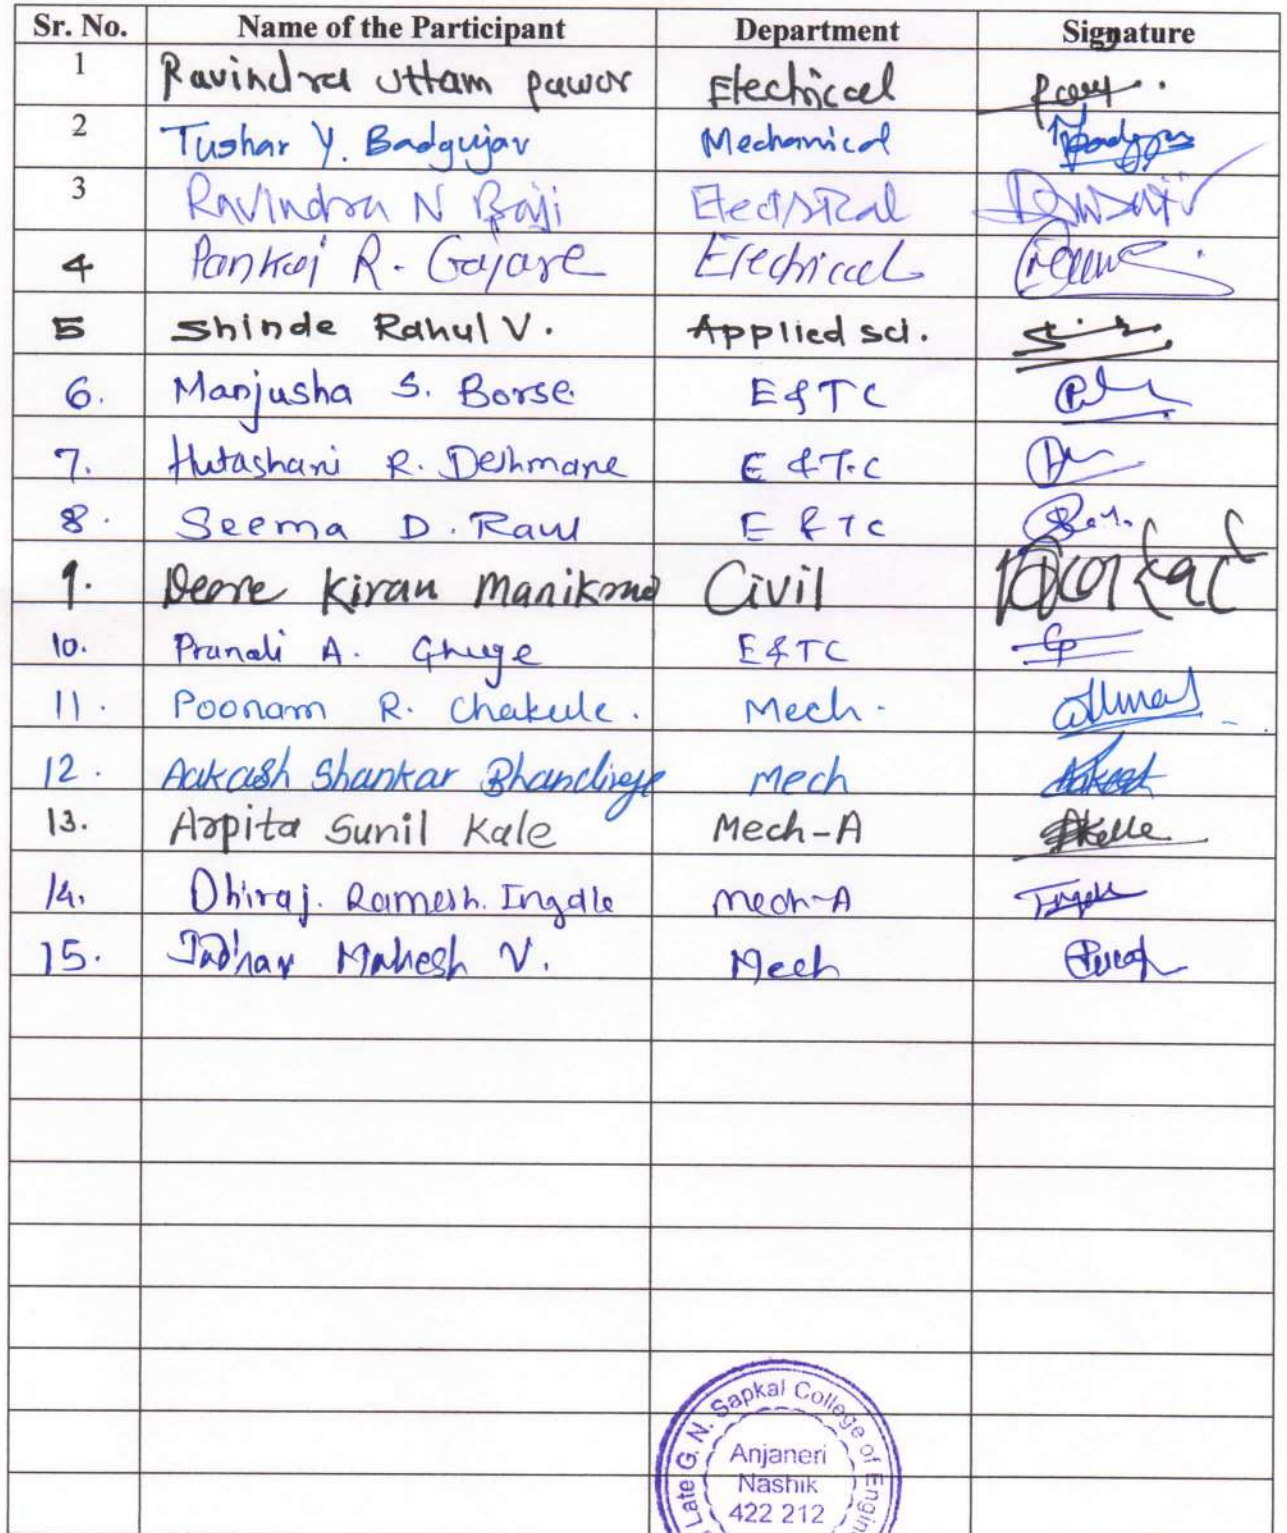 Sr. No. Name of the Participant Department Signature
1 Ravindra Uttam pawar Electrical
2 Tushar Y. Badgujar Mechanical
3 Ravindra N Electrical
4 Pankaj R. Gajare Electrical
5 Shinde Rahul V. Applied sci.
6. Manjusha S. Borse. E&TC
7. Hutashani R. Deshmane E &T.C
8. Seema D. Raul E & TC
9. Deore Kiran Civil
10. Pranali A. Ghuge E&TC
11. Poonam R. Chakule. Mech.
12. Aakash Shankar Mech Aakash
13. Arpita Sunil Kale Mech-A
14. Dhiraj. Ramesh. Ingale Mech-A
15. Jadhav Mahesh V. Mech
Late G. N. Sapkal College of
Anjaneri
Nashik
422 212